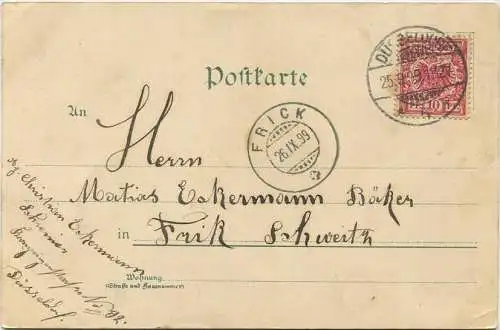 Postkarte
DÜSSELDORF
25.9.99
10
An
Herrn
FRICK
26.IX.99
Matias Eckermann Bäker
in Frik Schweitz
Wohnung
(Straße und Hausnummer)
Christian Eckermann
Schreiner
No 92.
Düsseldorf.